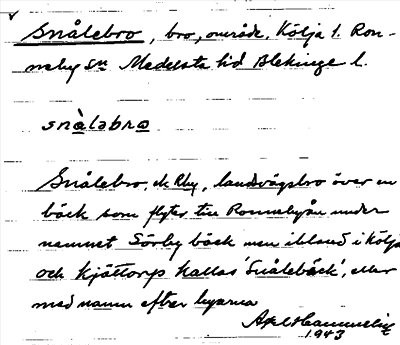 Snålebro, bro, område, Kölja 1. Ron-
neby sn Medelsta hd Blekinge l.
snàlabro
Snålebro, ek Rby, landsvägsbro över en
bäck som flyter till Ronnebyån under
namnet Sörby bäck men ibland i Kölja
och Kjättorp kallas 'Snålebäck', eller
med namn efter byarna
Axel Hammelin
1943